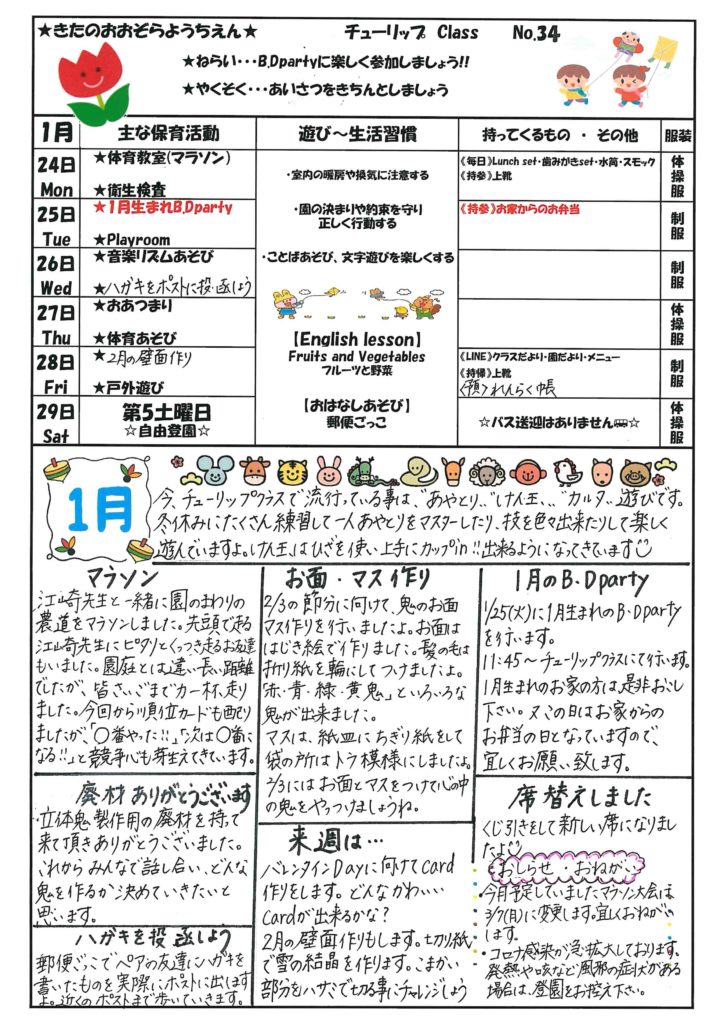 ★きたのおおぞらようちえん★
チューリップ Class No.34
★ねらい・・・B.Dpartyに楽しく参加しましょう!!
★やくそく・・・あいさつをきちんとしましょう
1月 主な保育活動 遊び～生活習慣 持ってくるもの・その他 服装
24日 Mon
★体育教室(マラソン)
★衛生検査
・室内の暖房や換気に注意する
《毎日》Lunch set・歯みがきset・水筒・スモック
《持参》上靴
体操服
25日 Tue
★1月生まれB.Dparty
★Playroom
・園の決まりや約束を守り
正しく行動する
《持参》お家からのお弁当
制服
26日 Wed
★音楽リズムあそび
★ハガキをポストに投函しよう
・ことばあそび、文字遊びを楽しくする
制服
27日 Thu
★おあつまり
★体育あそび
【English lesson】
Fruits and Vegetables
フルーツと野菜
体操服
28日 Fri
★2月の壁面作り
★戸外遊び
【おはなしあそび】
郵便ごっこ
《LINE》クラスだより・園だより・メニュー
《持帰》上靴
《預》れんらく帳
制服
29日 Sat
第5土曜日
☆自由登園☆
☆バス送迎はありません☆
体操服
1月
今、チューリップクラスで流行っている事は、“あやとり”“けん玉”“カルタ”遊びです。
冬休みにたくさん練習して一人あやとりをマスターしたり、技を色々出来たりして楽しく
遊んでいますよ。けん玉はひざを使い上手にカップin!!出来るようになってきています
マラソン
江崎先生と一緒に園のまわりの
農道をマラソンしました。先頭で走る
江崎先生にピタリとくっつき走るお友達
もいました。園庭とは違い長い距離
でしたが、皆さいごまで力一杯走り
ました。今回から順位カードも配り
ましたが、「○番やった!!」「次は○番に
なる!!」と競争心も芽生えてきています。
廃材ありがとうございます
・立体鬼製作用の廃材を持って
来て頂きありがとうございました。
これからみんなで話し合い、どんな
鬼を作るか決めていきたいと
思います。
ハガキを投函しよう
郵便ごっこでペアの友達にハガキを
書いたものを実際にポストに出します
よ。近くのポストまで歩いていきます。
お面・マス作り
2/3の節分に向けて、鬼のお面
マス作りを行いましたよ。お面は
はじき絵で作りました。髪の毛は
折り紙を輪にしてつけましたよ。
「赤・青・緑・黄鬼」といろいろな
鬼が出来ました。
マスは、紙皿にちぎり紙をして
袋の所はトラ模様にしましたよ。
2/3にはお面とマスをつけて心の中
の鬼をやっつけましょうね。
来週は…
バレンタインDayに向けてcard
作りをします。どんなかわいい
cardが出来るかな?
2月の壁面作りもします。切り紙
で雪の結晶を作ります。こまかい
部分をハサミで切る事にチャレンジしよう
1月のB.Dparty
1/25(火)に1月生まれのB.Dparty
を行います。
11:45～チューリップクラスにて行います。
1月生まれのお家の方は是非お越し
下さい。又、この日はお家からの
お弁当の日となっていますので、
宜しくお願い致します。
席替えしました
くじ引きをして新しい席になりまし
たよ
おしらせ・おねがい
・今月予定していましたマラソン大会は、
3/7(月)に変更します。宜しくおねがい
します。
・コロナ感染が急拡大しております。
発熱や咳など風邪の症状がある
場合は、登園をお控え下さい。